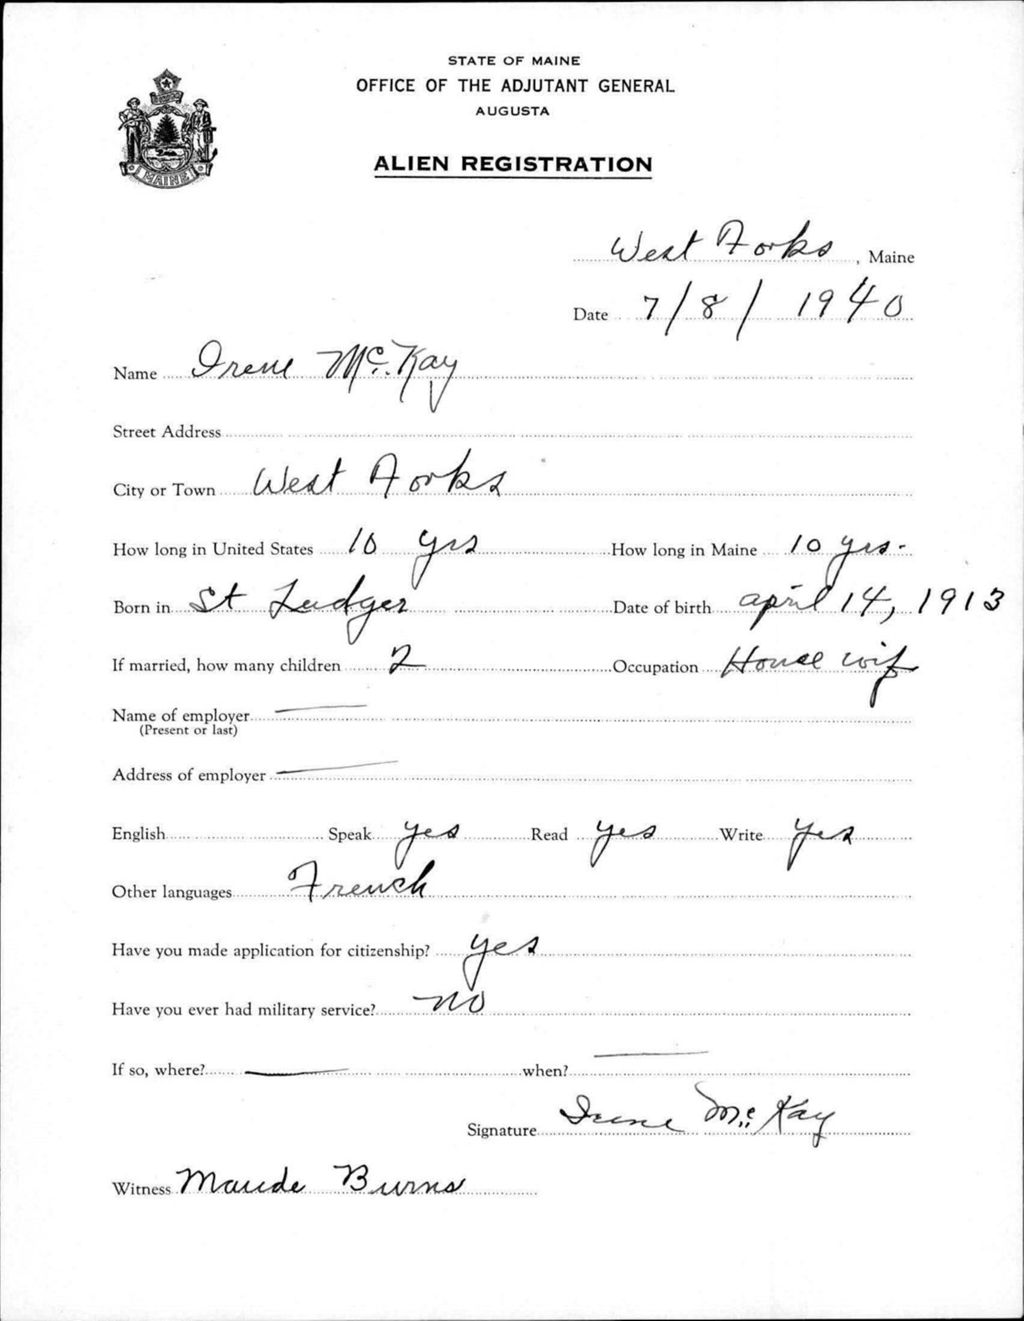 STATE OF MAINE
OFFICE OF THE ADJUTANT GENERAL
AUGUSTA
ALIEN REGISTRATION
MAINE
West Forks, Maine
Date 7/8/1940
Name Irene McKay
Street Address
City or Town West Forks
How long in United States 10 yrs How long in Maine 10 yrs.
Born in St Ludger Date of birth april 14, 1913
If married, how many children 2 Occupation House wif
Name of employer —
(Present or last)
Address of employer —
English Speak yes Read yes Write yes
Other languages French
Have you made application for citizenship? yes
Have you ever had military service? no
If so, where? — when? —
Signature Irene McKay
Witness Maude Burns